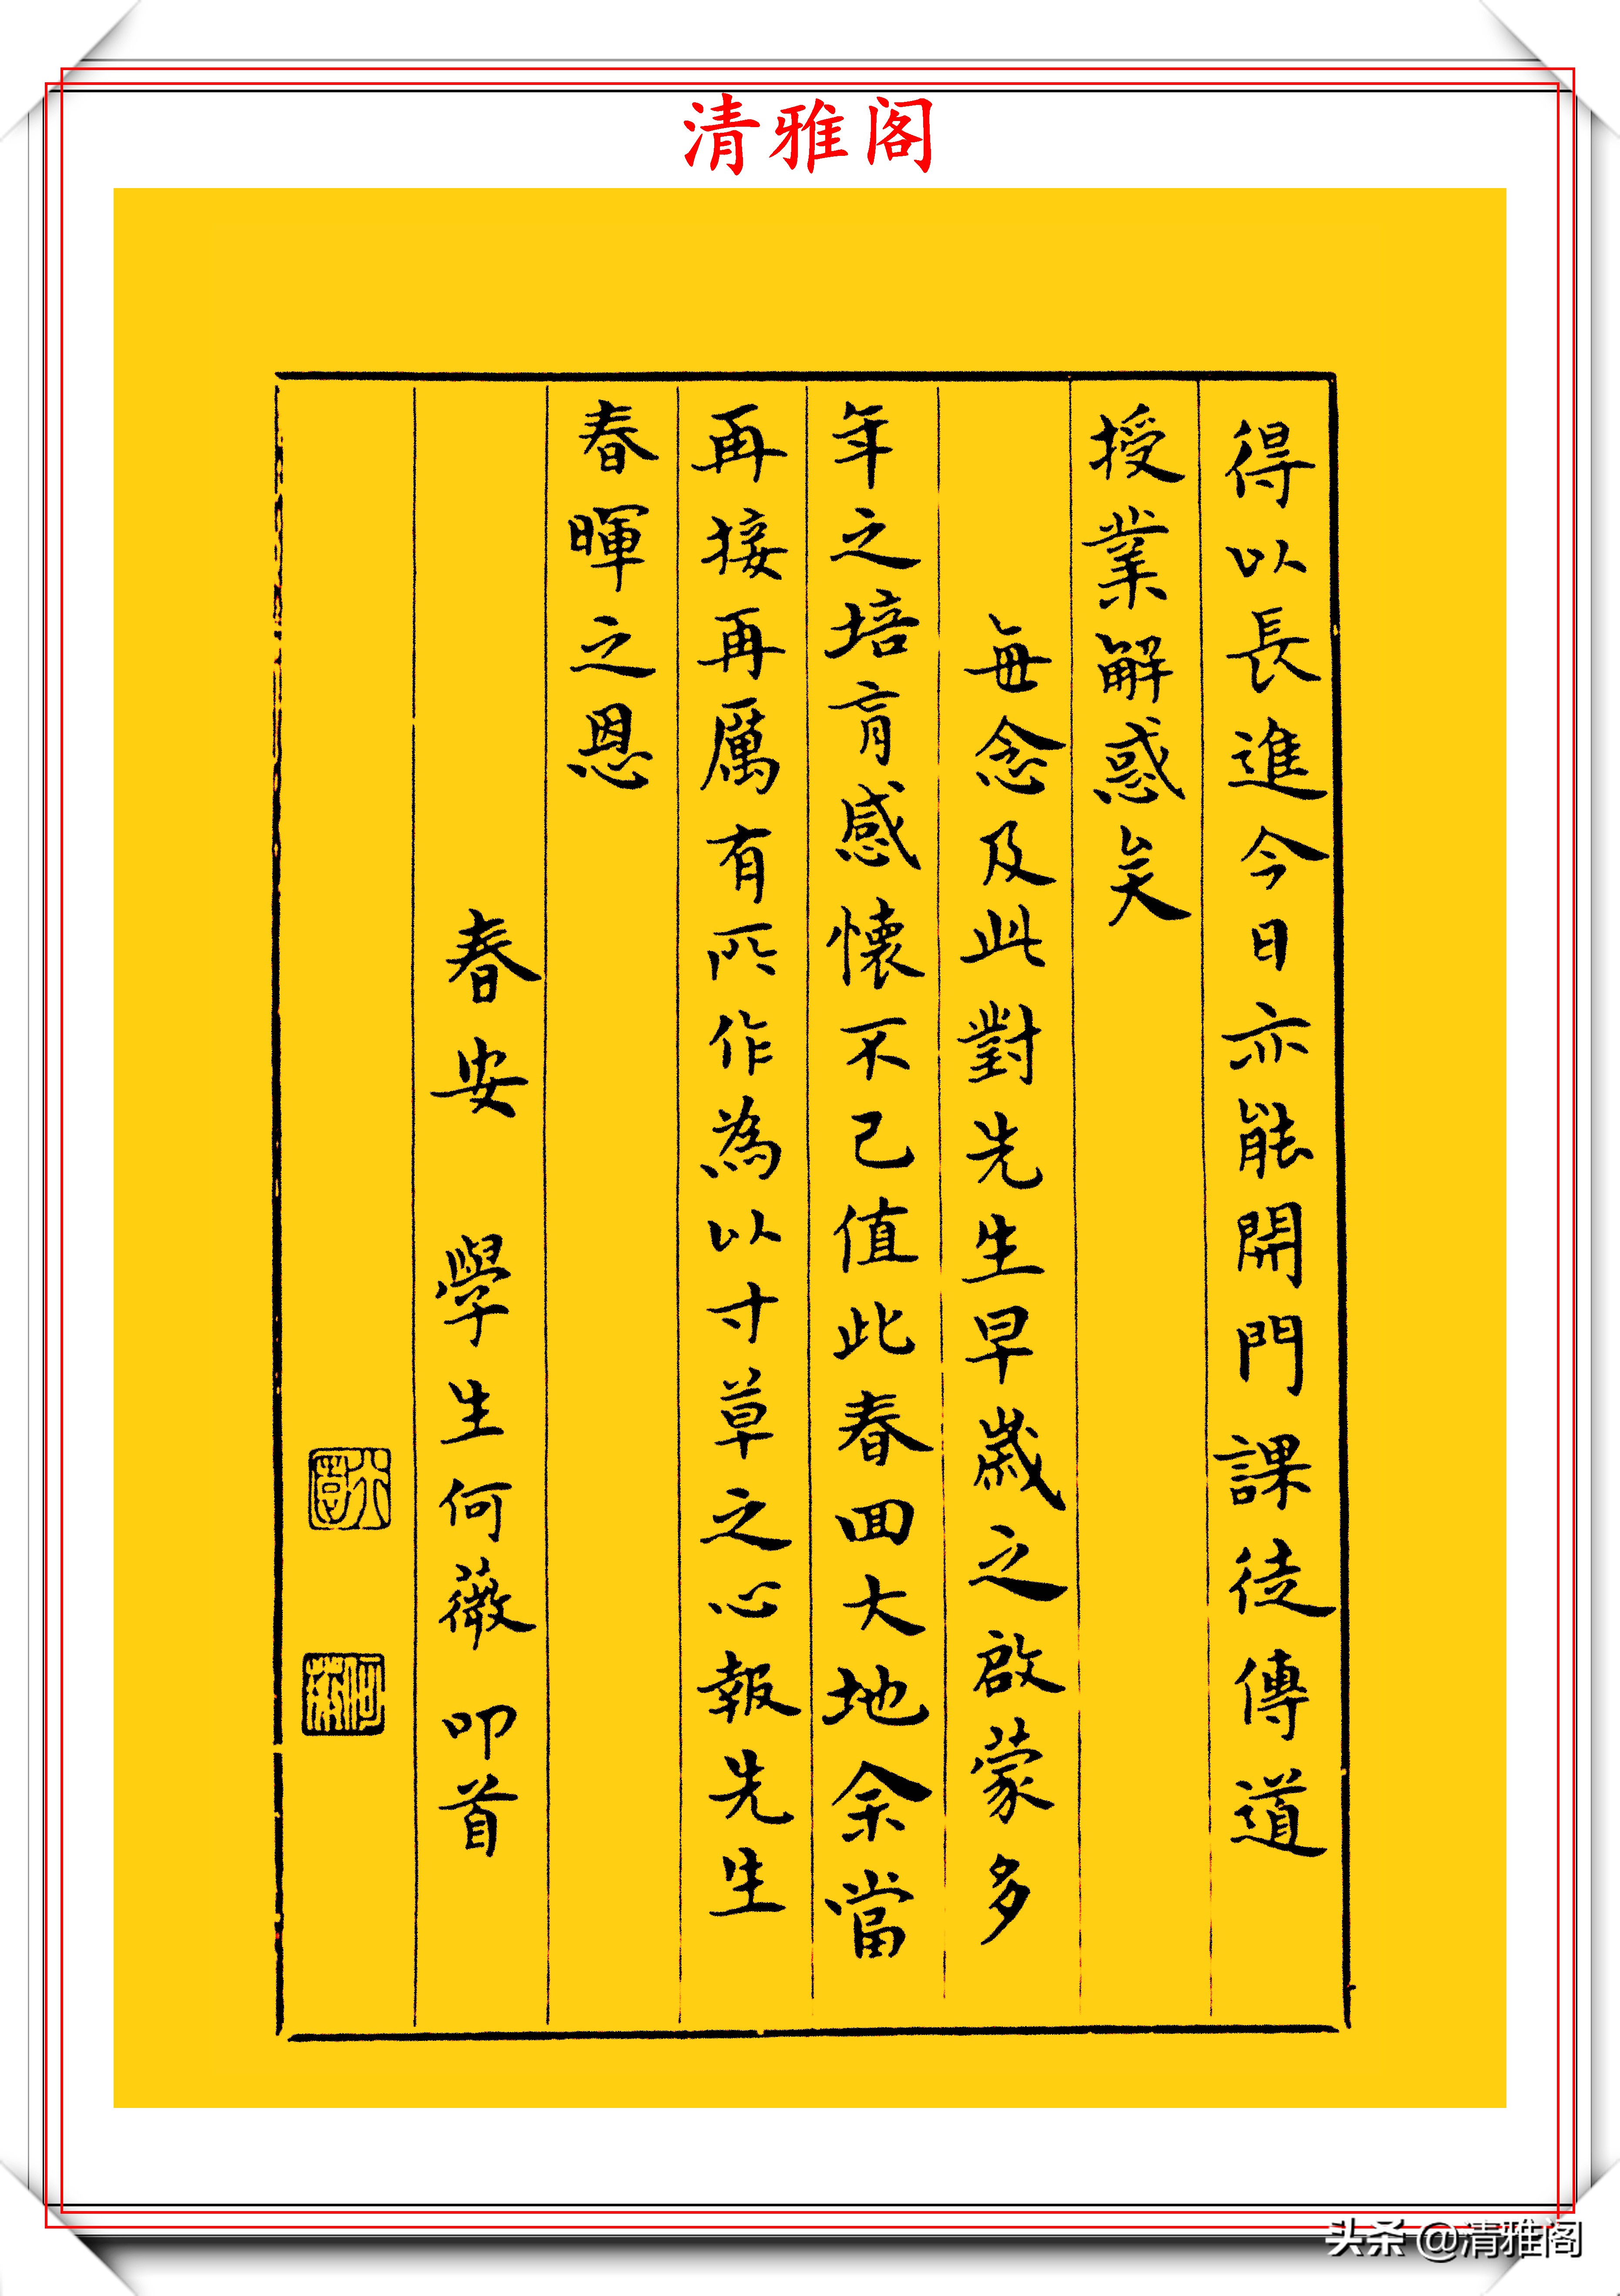 清雅阁
得以長進今日亦能開門課徒傳道
授業解惑矣
每念及此對先生早歲之啟蒙多
年之培育感懷不已值此春回大地余當
再接再厲有所作為以寸草之心報先生
春暉之恩
春安 學生何薇叩首
头条 @清雅阁